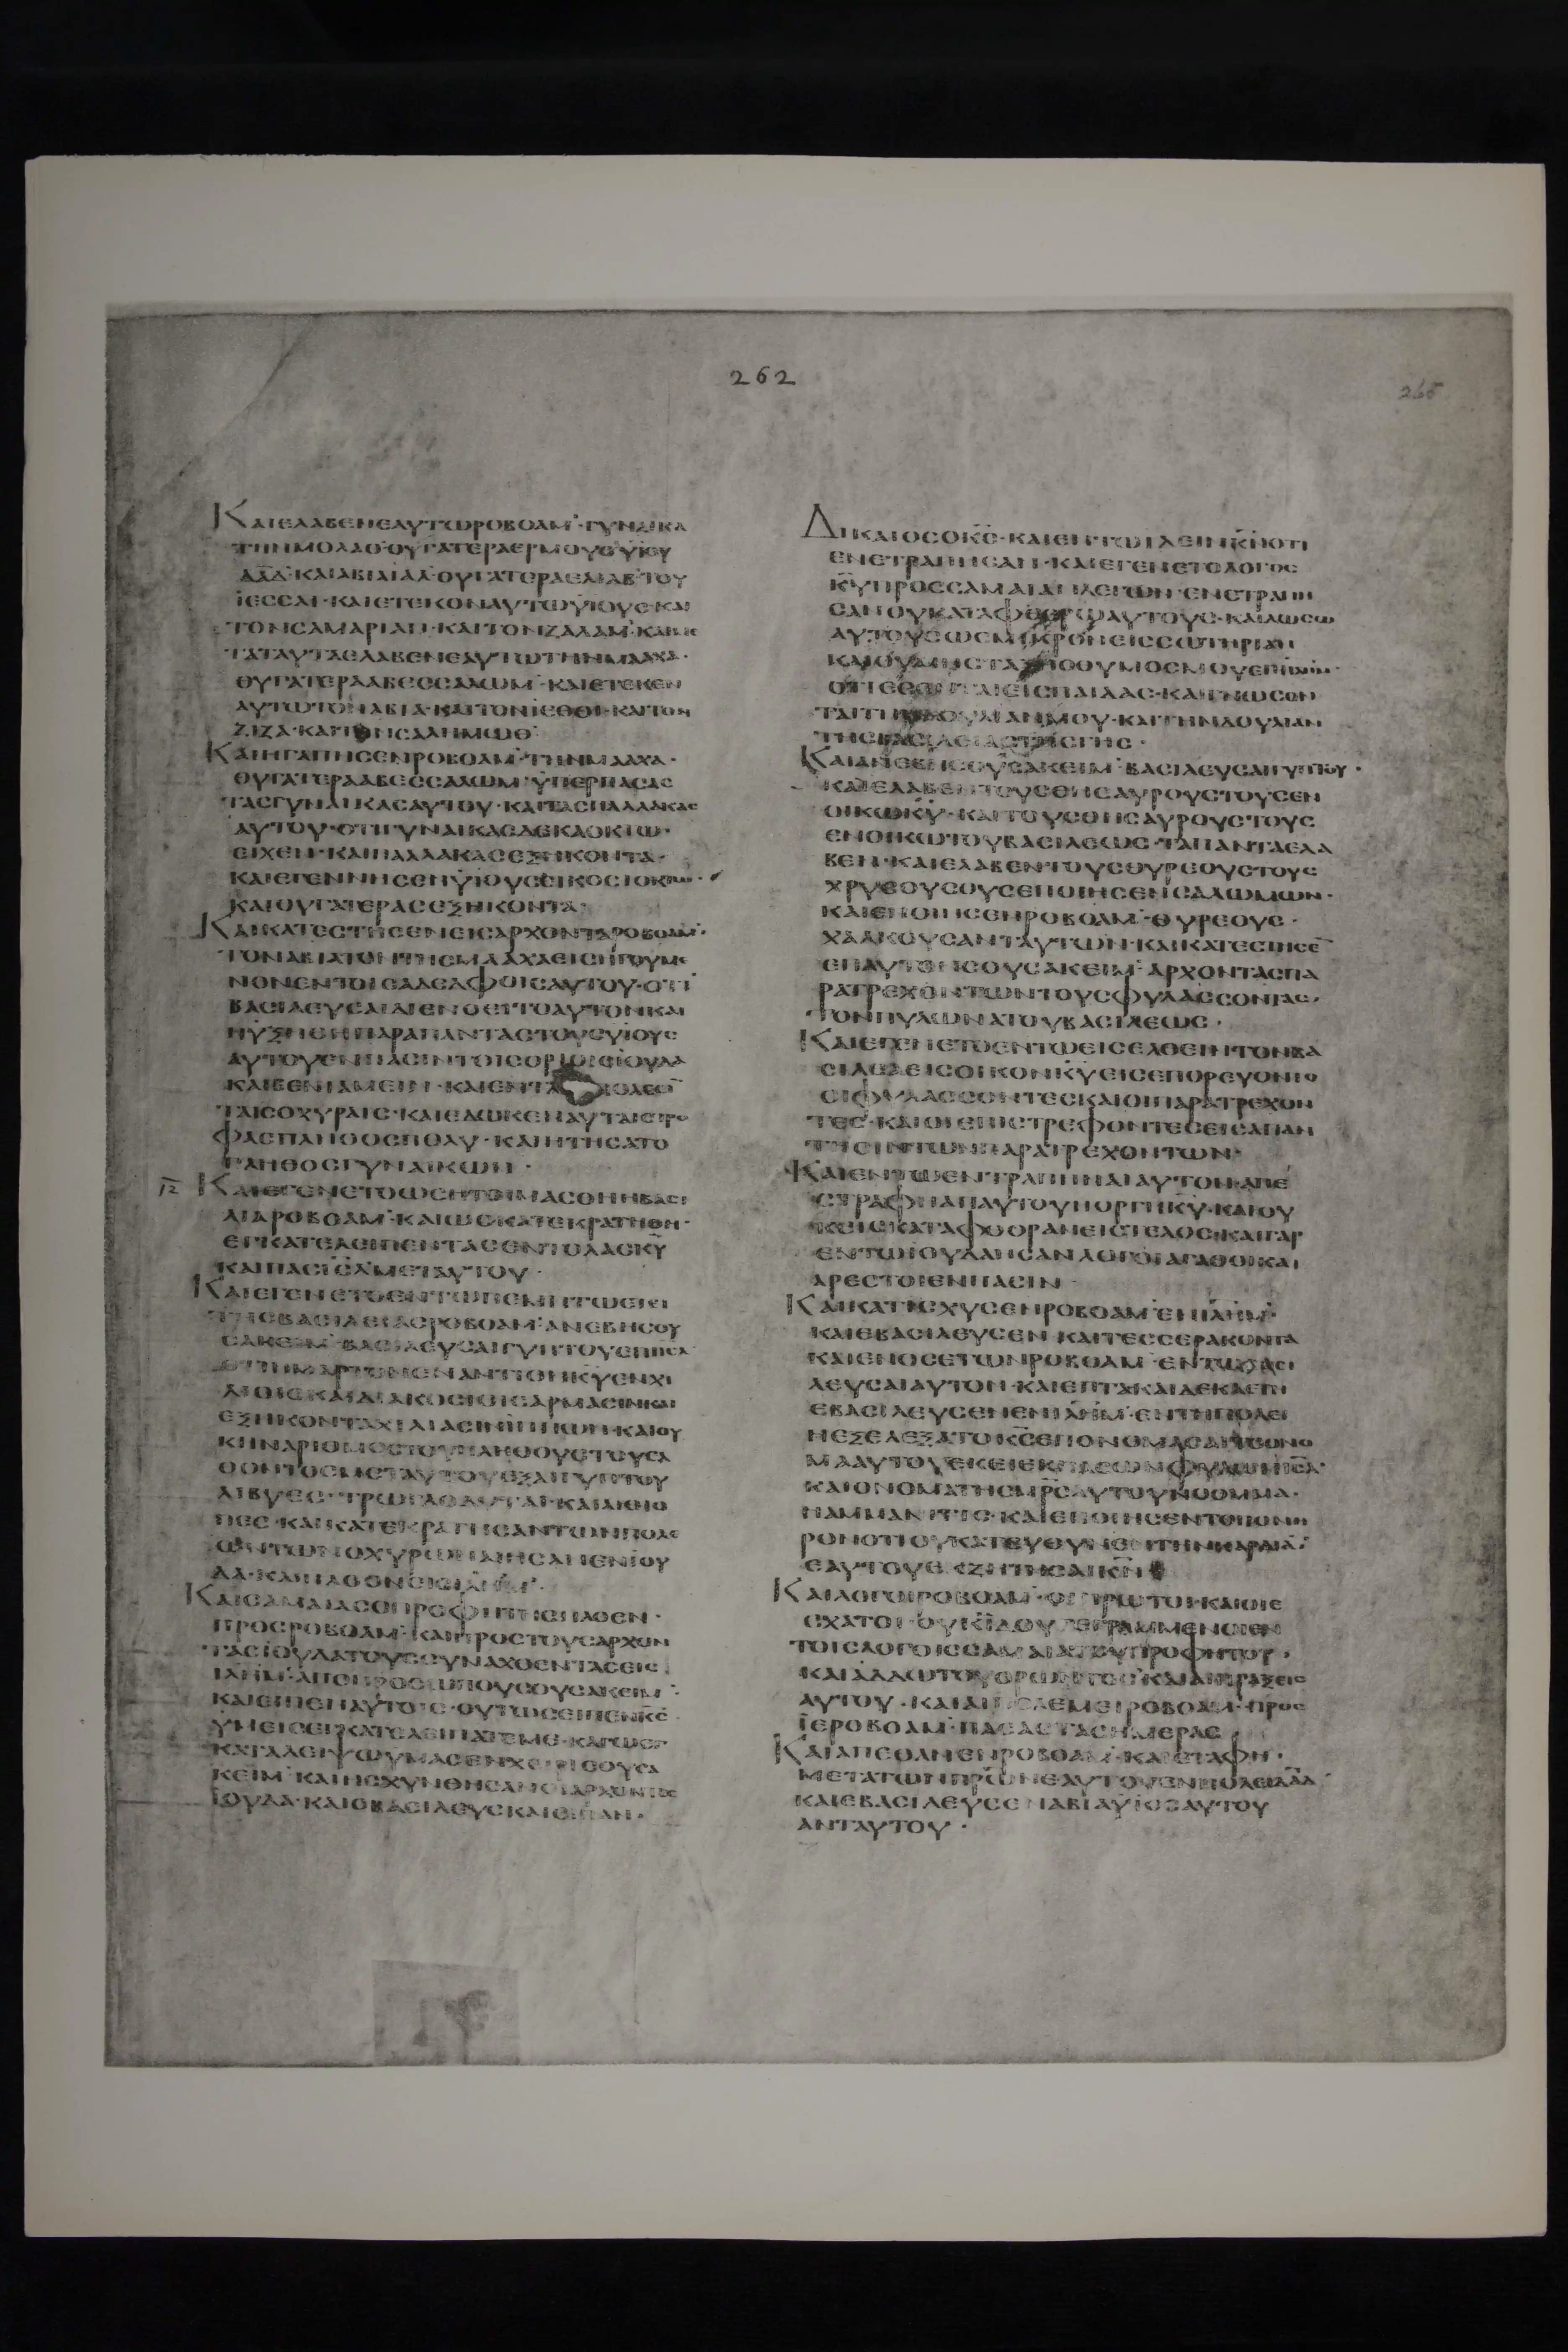 262
265
ΚΑΙΕΛΑΒΕΝΕΑΥΤΩΡΟΒΟΑΜ·ΓΥΝΑΙΚΑ
ΤΗΝΜΟΛΑΘΘΥΓΑΤΕΡΑΕΡΜΟΥΘΥΙΟΥ
ΔΑΔ·ΚΑΙΑΒΙΑΙΑΛ·ΘΥΓΑΤΕΡΑΕΛΙΑΒ·ΤΟΥ
ΙΕΣΣΑΙ·ΚΑΙΕΤΕΚΟΝΑΥΤΩΥΙΟΥΣ·ΚΑΙ
ΤΟΝΣΑΜΑΡΙΑΝ·ΚΑΙΤΟΝΖΑΛΑΜ·ΚΑΙΜΕ
ΤΑΤΑΥΤΑΕΛΑΒΕΝΕΑΥΤΩΤΗΝΜΑΑΧΑ·
ΘΥΓΑΤΕΡΑΑΒΕΣΣΑΛΩΜ·ΚΑΙΕΤΕΚΕΝ
ΑΥΤΩΤΟΝΑΒΙΑ·ΚΑΙΤΟΝΙΕΘΘΙ·ΚΑΙΤΟΝ
ΖΙΖΑ·ΚΑΙΤΟΝΣΑΛΗΜΩΘ
ΚΑΙΗΓΑΠΗΣΕΝΡΟΒΟΑΜ·ΤΗΝΜΑΑΧΑ·
ΘΥΓΑΤΕΡΑΑΒΕΣΣΑΛΩΜ·ΥΠΕΡΠΑΣΑΣ
ΤΑΣΓΥΝΑΙΚΑΣΑΥΤΟΥ·ΚΑΙΤΑΣΠΑΛΛΑΚΑΣ
ΑΥΤΟΥ·ΟΤΙΓΥΝΑΙΚΑΣΔΕΚΑΟΚΤΩ·
ΕΙΧΕΝ·ΚΑΙΠΑΛΛΑΚΑΣΕΞΗΚΟΝΤΑ·
ΚΑΙΕΓΕΝΝΗΣΕΝΥΙΟΥΣΕΙΚΟΣΙΟΚΤΩ·
ΚΑΙΘΥΓΑΤΕΡΑΣΕΞΗΚΟΝΤΑ·
ΚΑΙΚΑΤΕΣΤΗΣΕΝΕΙΣΑΡΧΟΝΤΑΡΟΒΟΑΜ·
ΤΟΝΑΒΙΑΤΟΝΤΗΣΜΑΑΧΑΕΙΣΗΓΟΥΜΕ
ΝΟΝΕΝΤΟΙΣΑΔΕΛΦΟΙΣΑΥΤΟΥ·ΟΤΙ
ΒΑΣΙΛΕΥΣΑΙΔΙΕΝΟΕΙΤΟΑΥΤΟΝΚΑΙ
ΗΥΞΗΘΗΠΑΡΑΠΑΝΤΑΣΤΟΥΣΥΙΟΥΣ
ΑΥΤΟΥΕΝΠΑΣΙΝΤΟΙΣΟΡΙΟΙΣΙΟΥΔΑ
ΚΑΙΒΕΝΙΑΜΕΙΝ·ΚΑΙΕΝΤΑ ΠΟΛΕΣΙ
ΤΑΙΣΟΧΥΡΑΙΣ·ΚΑΙΕΔΩΚΕΝΑΥΤΑΙΣΤΡΟ
ΦΑΣΠΛΗΘΟΣΠΟΛΥ·ΚΑΙΗΤΗΣΑΤΟ
ΠΛΗΘΟΣΓΥΝΑΙΚΩΝ·
ΙΖ ΚΑΙΕΓΕΝΕΤΟΩΣΗΤΟΙΜΑΣΘΗΗΒΑΣΙ
ΛΙΑΡΟΒΟΑΜ·ΚΑΙΩΣΚΑΤΕΚΡΑΤΗΘΗ·
ΕΓΚΑΤΕΛΕΙΠΕΝΤΑΣΕΝΤΟΛΑΣΚΥ
ΚΑΙΠΑΣΙΣΛΜΕΤΑΥΤΟΥ·
ΚΑΙΕΓΕΝΕΤΟΕΝΤΩΠΕΜΠΤΩΕΤΕΙ
ΤΗΣΒΑΣΙΛΕΙΑΣΡΟΒΟΑΜ·ΑΝΕΒΗΣΟΥ
ΣΑΚΕΙΜ·ΒΑΣΙΛΕΥΣΑΙΓΥΠΤΟΥΕΠΙΙΣΛ
ΟΤΙΗΜΑΡΤΟΝΕΝΑΝΤΙΟΝΚΥΕΝΧΙ
ΛΙΟΙΣΚΑΙΔΙΑΚΟΣΙΟΙΣΑΡΜΑΣΙΝΚΑΙ
ΕΞΗΚΟΝΤΑΧΙΛΙΑΣΙΝΙΠΠΩΝ·ΚΑΙΟΥ
ΚΗΝΑΡΙΘΜΟΣΤΟΥΠΛΗΘΟΥΣΤΟΥΕΛ
ΘΟΝΤΟΣΜΕΤΑΥΤΟΥΕΞΑΙΓΥΠΤΟΥ
ΛΙΒΥΕΣ·ΤΡΩΓΛΟΔΥΤΑΙ·ΚΑΙΑΙΘΙΟ
ΠΕΣ·ΚΑΙΚΑΤΕΚΡΑΤΗΣΑΝΤΩΝΠΟΛΕ
ΩΝΤΩΝΟΧΥΡΩΝΑΙΗΣΑΝΕΝΙΟΥ
ΔΑ·ΚΑΙΗΛΘΟΝΕΙΣΙΛΗΜ·
ΚΑΙΣΑΜΑΙΑΣΟΠΡΟΦΗΤΗΣΗΛΘΕΝ·
ΠΡΟΣΡΟΒΟΑΜ·ΚΑΙΠΡΟΣΤΟΥΣΑΡΧΟΝ
ΤΑΣΙΟΥΔΑΤΟΥΣΣΥΝΑΧΘΕΝΤΑΣΕΙΣ
ΙΛΗΜ·ΑΠΟΠΡΟΣΩΠΟΥΣΟΥΣΑΚΕΙΜ·
ΚΑΙΕΙΠΕΝΑΥΤΟΙΣ·ΟΥΤΩΣΕΙΠΕΝΚΣ·
ΥΜΕΙΣΕΓΚΑΤΕΛΕΙΠΑΤΕΜΕ·ΚΑΓΩΕΓ
ΚΑΤΑΛΕΙΨΩΥΜΑΣΕΝΧΕΙΡΙΣΟΥΣΑ
ΚΕΙΜ·ΚΑΙΗΣΧΥΝΘΗΣΑΝΟΙΑΡΧΟΝΤΕΣ
ΙΟΥΔΑ·ΚΑΙΟΒΑΣΙΛΕΥΣΚΑΙΕΙΠΑΝ·
ΔΙΚΑΙΟΣΟΚΣ·ΚΑΙΕΝΤΩΙΔΕΙΝΚΝΟΤΙ
ΕΝΕΤΡΑΠΗΣΑΝ·ΚΑΙΕΓΕΝΕΤΟΛΟΓΟΣ
ΚΥΠΡΟΣΣΑΜΑΙΑΝΛΕΓΩΝ·ΕΝΕΤΡΑΠΗ
ΣΑΝΟΥΚΑΤΑΦΘΕΡΩΑΥΤΟΥΣ·ΚΑΙΔΩΣΩ
ΑΥΤΟΥΣΩΣΜΙΚΡΟΝΕΙΣΣΩΤΗΡΙΑΝ
ΚΑΙΟΥΜΗΣΤΑΞΗΟΘΥΜΟΣΜΟΥΕΠΙΙΛΗΜ·
ΟΤΙΕΣΟΝΤΑΙΕΙΣΠΑΙΔΑΣ·ΚΑΙΓΝΩΣΟΝ
ΤΑΙΤΗΝΔΟΥΛΙΑΝΜΟΥ·ΚΑΙΤΗΝΔΟΥΛΙΑΝ
ΤΗΣΒΑΣΙΛΕΙΑΣΤΗΣΓΗΣ·
ΚΑΙΑΝΕΒΗΣΟΥΣΑΚΕΙΜ·ΒΑΣΙΛΕΥΣΑΙΓΥΠΤΟΥ·
ΚΑΙΕΛΑΒΕΝΤΟΥΣΘΗΣΑΥΡΟΥΣΤΟΥΣΕΝ
ΟΙΚΩΚΥ·ΚΑΙΤΟΥΣΘΗΣΑΥΡΟΥΣΤΟΥΣ
ΕΝΟΙΚΩΤΟΥΒΑΣΙΛΕΩΣ·ΤΑΠΑΝΤΑΕΛΑ
ΒΕΝ·ΚΑΙΕΛΑΒΕΝΤΟΥΣΘΥΡΕΟΥΣΤΟΥΣ
ΧΡΥΣΟΥΣΟΥΣΕΠΟΙΗΣΕΝΣΑΛΩΜΩΝ·
ΚΑΙΕΠΟΙΗΣΕΝΡΟΒΟΑΜ·ΘΥΡΕΟΥΣ·
ΧΑΛΚΟΥΣΑΝΤΑΥΤΩΝ·ΚΑΙΚΑΤΕΣΤΗΣΕ
ΕΠΑΥΤΟΝΣΟΥΣΑΚΕΙΜ·ΑΡΧΟΝΤΑΣΠΑ
ΡΑΤΡΕΧΟΝΤΩΝΤΟΥΣΦΥΛΑΣΣΟΝΤΑΣ·
ΤΟΝΠΥΛΩΝΑΤΟΥΒΑΣΙΛΕΩΣ·
ΚΑΙΕΓΕΝΕΤΟΕΝΤΩΕΙΣΕΛΘΕΙΝΤΟΝΒΑ
ΣΙΛΕΑΕΙΣΟΙΚΟΝΚΥΕΙΣΕΠΟΡΕΥΟΝΤΟ
ΟΙΦΥΛΑΣΣΟΝΤΕΣΚΑΙΟΙΠΑΡΑΤΡΕΧΟΝ
ΤΕΣ·ΚΑΙΟΙΕΠΙΣΤΡΕΦΟΝΤΕΣΕΙΣΑΠΑΝ
ΤΗΣΙΝΤΩΝΠΑΡΑΤΡΕΧΟΝΤΩΝ·
ΚΑΙΕΝΤΩΕΝΤΡΑΠΗΝΑΙΑΥΤΟΝΑΠΕ
ΣΤΡΑΦΗΑΠΑΥΤΟΥΗΟΡΓΗΚΥ·ΚΑΙΟΥ
ΚΕΙΣΚΑΤΑΦΘΟΡΑΝΕΙΣΤΕΛΟΣ·ΚΑΙΓΑΡ
ΕΝΤΩΙΟΥΔΑΗΣΑΝΛΟΓΟΙΑΓΑΘΟΙΚΑΙ
ΑΡΕΣΤΟΙΕΝΠΑΣΙΝ·
ΚΑΙΚΑΤΙΣΧΥΣΕΝΡΟΒΟΑΜ·ΕΝΙΛΗΜ·
ΚΑΙΕΒΑΣΙΛΕΥΣΕΝ·ΚΑΙΤΕΣΣΕΡΑΚΟΝΤΑ
ΚΑΙΕΝΟΣΕΤΩΝΡΟΒΟΑΜ·ΕΝΤΩΒΑΣΙ
ΛΕΥΣΑΙΑΥΤΟΝ·ΚΑΙΕΠΤΑΚΑΙΔΕΚΑΕΤΗ
ΕΒΑΣΙΛΕΥΣΕΝΕΝΙΛΗΜ·ΕΝΤΗΠΟΛΕΙ
ΗΕΞΕΛΕΞΑΤΟΚΣΕΠΟΝΟΜΑΣΑΙΤΟΟΝΟ
ΜΑΑΥΤΟΥΕΚΕΙΕΚΠΑΣΩΝΦΥΛΩΝΙΣΛ·
ΚΑΙΟΝΟΜΑΤΗΣΜΡΣΑΥΤΟΥΝΟΟΜΜΑ·
ΗΑΜΜΑΝΙΤΙΣ·ΚΑΙΕΠΟΙΗΣΕΝΤΟΠΟΝΗ
ΡΟΝΟΤΙΟΥΚΑΤΕΥΘΥΝΕΝΤΗΝΚΑΡΔΙΑ·
ΕΑΥΤΟΥΕΚΖΗΤΗΣΑΙΚΝ
ΚΑΙΛΟΓΟΙΡΟΒΟΑΜ·ΟΙΠΡΩΤΟΙ·ΚΑΙΟΙΕ
ΣΧΑΤΟΙ·ΟΥΚΙΔΟΥΓΕΓΡΑΜΜΕΝΟΙΕΝ
ΤΟΙΣΛΟΓΟΙΣΣΑΜΑΙΑΤΟΥΠΡΟΦΗΤΟΥ·
ΚΑΙΑΔΔΩΤΟΥΟΡΩΝΤΟΣ·ΚΑΙΑΙΠΡΑΞΕΙΣ
ΑΥΤΟΥ·ΚΑΙΑΙΠΟΛΕΜΕΙΡΟΒΟΑΜ·ΠΡΟΣ
ΙΕΡΟΒΟΑΜ·ΠΑΣΑΣΤΑΣΗΜΕΡΑΣ
ΚΑΙΑΠΕΘΑΝΕΝΡΟΒΟΑΜ·ΚΑΙΕΤΑΦΗ·
ΜΕΤΑΤΩΝΠΡΩΝΕΑΥΤΟΥΕΝΠΟΛΕΙΔΑΔ·
ΚΑΙΕΒΑΣΙΛΕΥΣΕΝΑΒΙΑΥΙΟΣΑΥΤΟΥ
ΑΝΤΑΥΤΟΥ·